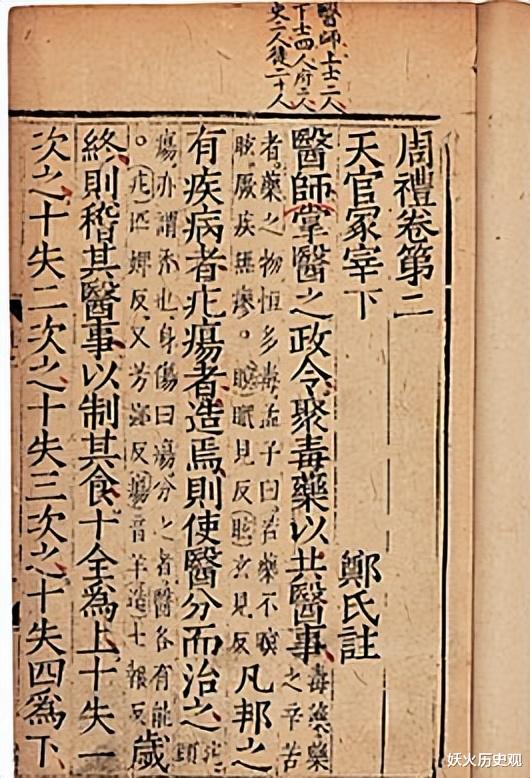 醫師上士二人
下士四人府二人
史二人徒二十人
周禮卷第二
天官冢宰下 鄭氏註
醫師掌醫之政令聚毒藥以共醫事毒藥藥之辛苦
者藥之物恒多毒孟子曰若藥不瞑
眩厥疾無瘳。瞑眠見反眩玄見反凡邦之
有疾病者疕瘍者造焉則使醫分而治之疕頭
瘍亦謂禿也身傷曰瘍分之者醫各有能
。疕匹婢反又芳鄙反瘍音羊造七報反歲
終則稽其醫事以制其食十全為上十失一
次之十失二次之十失三次之十失四為下
妖火历史观